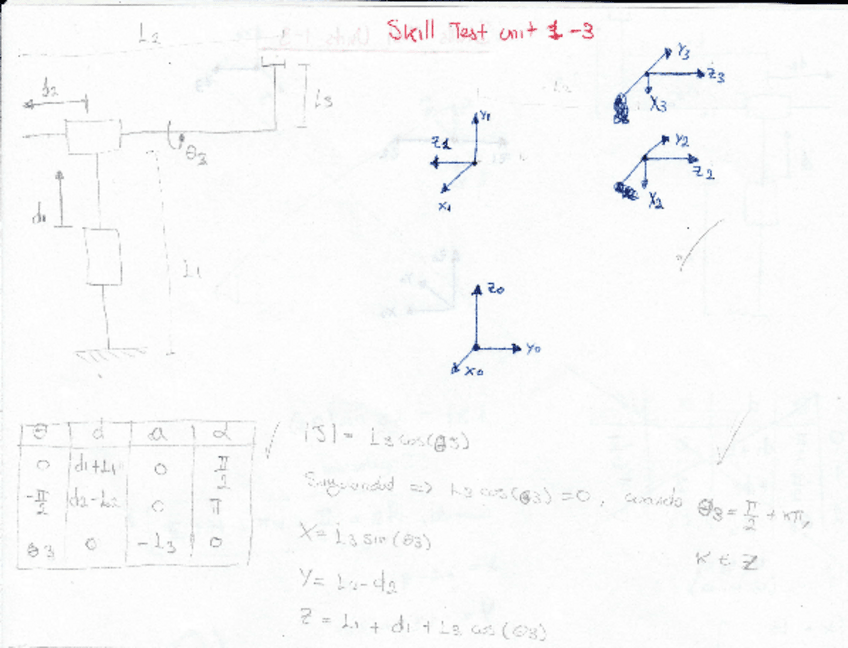 Skill Test unit 1-3
L2
d2
L3
θ3
d1
L1
Y1
Z1
X1
Y3
Z3
X3
Y2
Z2
X2
Z0
Y0
X0
θ d a α
0 d1+L1 0 π/2
-π/2 d2-L2 0 π
θ3 0 -L3 0
|J| = L3 cos(θ3)
Singularidad => L3 cos(θ3) = 0, cuando θ3 = π/2 + kπ,
K ∈ Z
X = L3 sin(θ3)
Y = L2 - d2
Z = L1 + d1 + L3 cos(θ3)